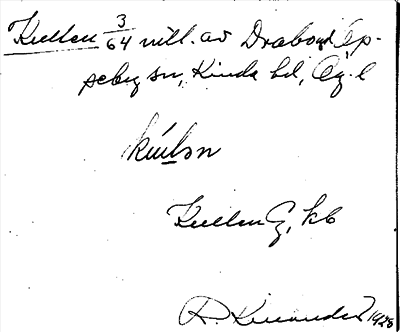 Kullen 3/64 mtl. av Drabo, Op-
peby sn, Kinda hd, Ög. l
kúlsn
Kullen G, kb
R. Kinander 1928